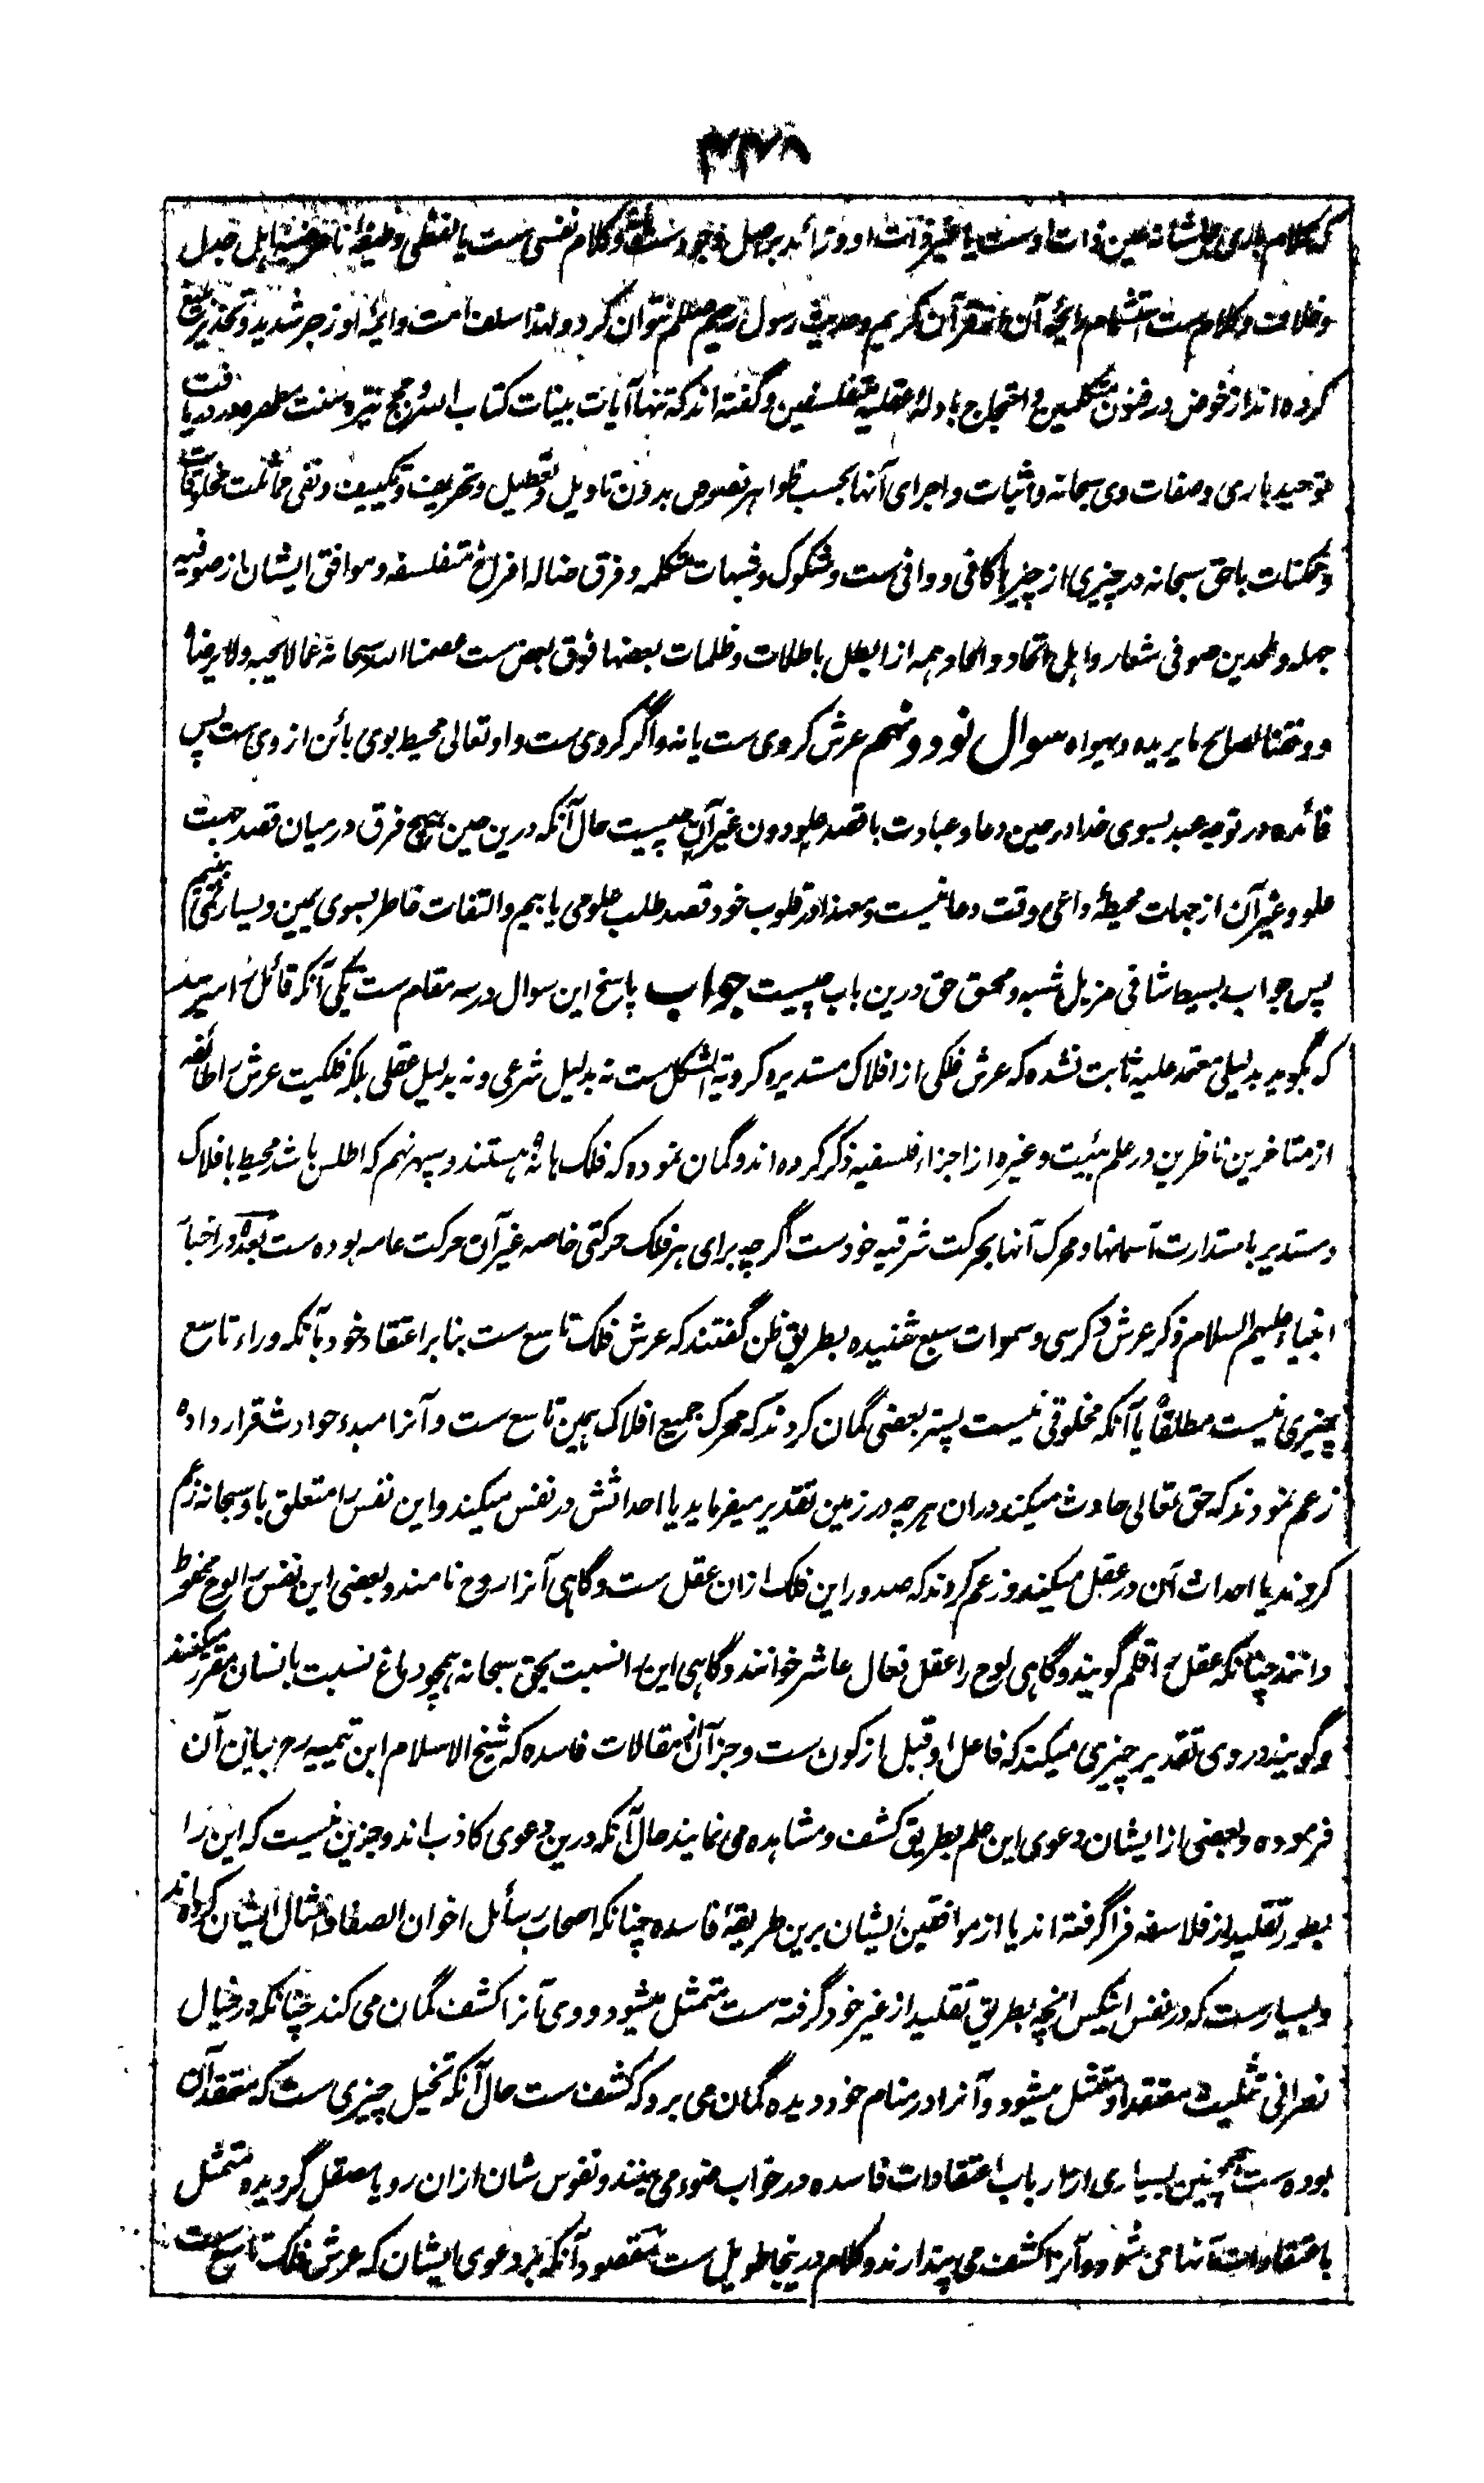 ۳۳۸
که کلام باری جل شانه عین ذات اوست یا غیر ذات او و زائد بر اصل وجود ست و کلام نفسی ست یا لفظی وظیفهٔ اهل جدل
و خلاف و کلام ست استشمام رائحهٔ آن از قرآن کریم و حدیث رسول رحیم صلعم نتوان کرد و لهذا سلف امت و ائمهٔ او زجر شدید و تحذیر بلیغ
کرده‌اند از خوض در فنون متکلمین و احتجاج بادلهٔ عقلیهٔ متفلسفین و گفته‌اند که تنها آیات بینات کتاب الله و حجج نیره سنت مطهره در دریافت
توحید باری و صفات وی سبحانه و اثبات و اجرای آنها بحسب ظواهر نصوص بدون تاویل و تعطیل و تحریف و تکییف و نفی مماثلت مخلوقات
و ممکنات با حق سبحانه در چیزی از چیزها کافی و وافی ست و شکوک و شبهات متکلمه و فرق ضاله افراخ متفلسفه و موافق ایشان از صوفیه
جمله و ملحدین صوفی شعار و اهل اتحاد و الحاد همه از ابطل باطلات و ظلمات بعضها فوق بعض ست عصمنا الله سبحانه عما لا یحبه و لا یرضاه
و وفقنا لصالح ما یریده و یهواه سوال نود و نهم عرش کروی ست یا نه و اگر کروی ست و او تعالی محیط بوی بائن از وی ست پس
فائده در توجه عبد بسوی خدا در حین دعا و عبادت با قصد علو دون غیر آن چیست حال آنکه درین حین هیچ فرق درمیان قصد جهت
علو و غیر آن از جهات محیطهٔ داعی وقت دعا نیست و معهذا در قلوب خود قصد طلب علو می یابیم و التفات خاطر بسوی یمین و یسار نمی بینیم
پس جواب بسیط شافی مزیل شبه و محقق حق درین باب چیست جواب پاسخ این سوال در سه مقام ست یکی آنکه قائل را میرسد
که بگوید بدلیلی معتمد علیه ثابت نشده که عرش فلکی از افلاک مستدیره کرویة الشکل ست نه بدلیل شرعی و نه بدلیل عقلی بلکه فلکیت عرش را طائفه
از متاخرین ناظرین در علم هیئت و غیره از اجزاء فلسفیه ذکر کرده‌اند و گمان نموده که فلک ها نه هستند و سپهر نهم که اطلس باشد محیط بافلاک
و مستدیر باستدارت آسمانها و محرک آنها بحرکت شرقیه خودست اگرچه برای هر فلک حرکتی خاصه غیر آن حرکت عامه بوده ست بعده در اخبار
انبیاء علیهم السلام ذکر عرش و کرسی و سموات سبع شنیده بطریق ظن گفتند که عرش فلک تاسع ست بنا بر اعتقاد خود بآنکه وراء تاسع
چیزی نیست مطلقاً یا آنکه مخلوقی نیست پستر بعضی گمان کردند که محرک جمیع افلاک همین تاسع ست و آنرا مبدء حوادث قرار داده
زعم نمودند که حق تعالی حادث میکند دران هرچه در زمین تقدیر میفرماید یا احداثش در نفس میکند و این نفس را متعلق باو سبحانه زعم
کردند یا احداث آن در عقل میکند و زعم کردند که صدور این فلک ازان عقل ست و گاهی آنرا روح نامند و بعضی این نفس را لوح محفوظ
دانند چنانکه عقل را قلم گویند و گاهی لوح را عقل فعال عاشر خوانند و گاهی این را نسبت بحق سبحانه همچو دماغ نسبت بانسان مقرر میکنند
و گویند در وی تقدیر چیزی میکند که فاعل او قبل از کون ست و جز آن از مقالات فاسده که شیخ الاسلام ابن تیمیه رح بیان آن
فرموده و بعضی از ایشان دعوی این علم بطریق کشف و مشاهده می نمایند حال آنکه درین دعوی کاذب اند و جزین نیست که این را
بطور تقلید از فلاسفه فرا گرفته‌اند یا از موافقین ایشان برین طریقهٔ فاسده چنانکه اصحاب رسائل اخوان الصفا و امثال ایشان کرده‌اند
و بسیارست که در نفس اینکس آنچه بطریق تقلید از غیر خود گرفته ست متمثل میشود و وی آنرا کشف گمان می کند چنانکه در خیال
نصرانی تثلیث معتقد او متمثل میشود و آنرا در منام خود دیده گمان می برد که کشف ست حال آنکه تخیل چیزی ست که معتقد آن
بوده ست همچنین بسیاری از ارباب اعتقادات فاسده در خواب ضوء می بینند و نفوس شان ازان رویا صقل گردیده متمثل
باعتقادات آنها می شود و آنرا کشف می پندارند و کلام درینجا طویل ست مقصود آنکه بر دعوی ایشان که عرش فلک تاسع ست